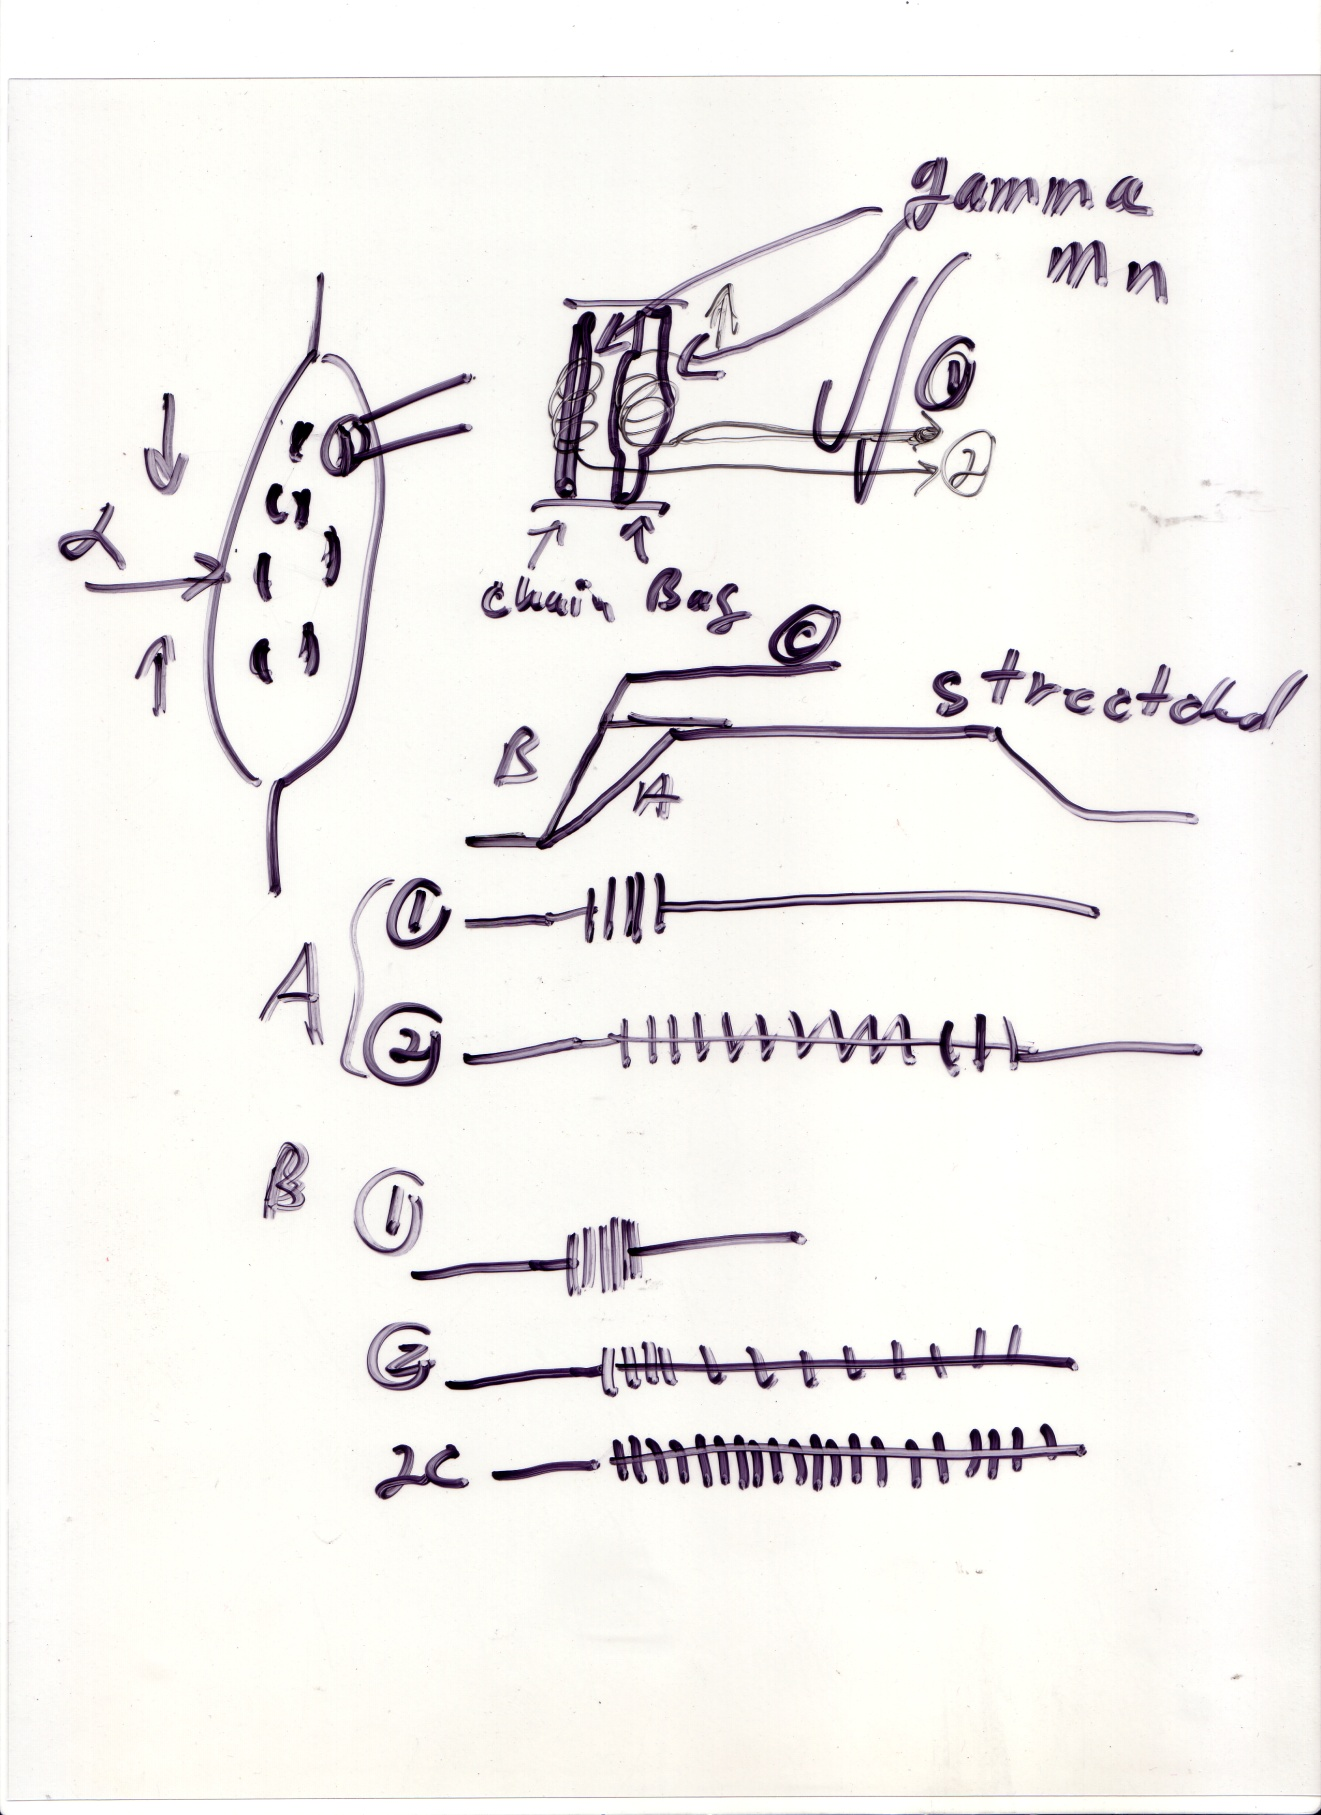 gamma
mn
①
②
α
chain Bag
©
stretched
B
A
①
A
②
B
①
②
2C